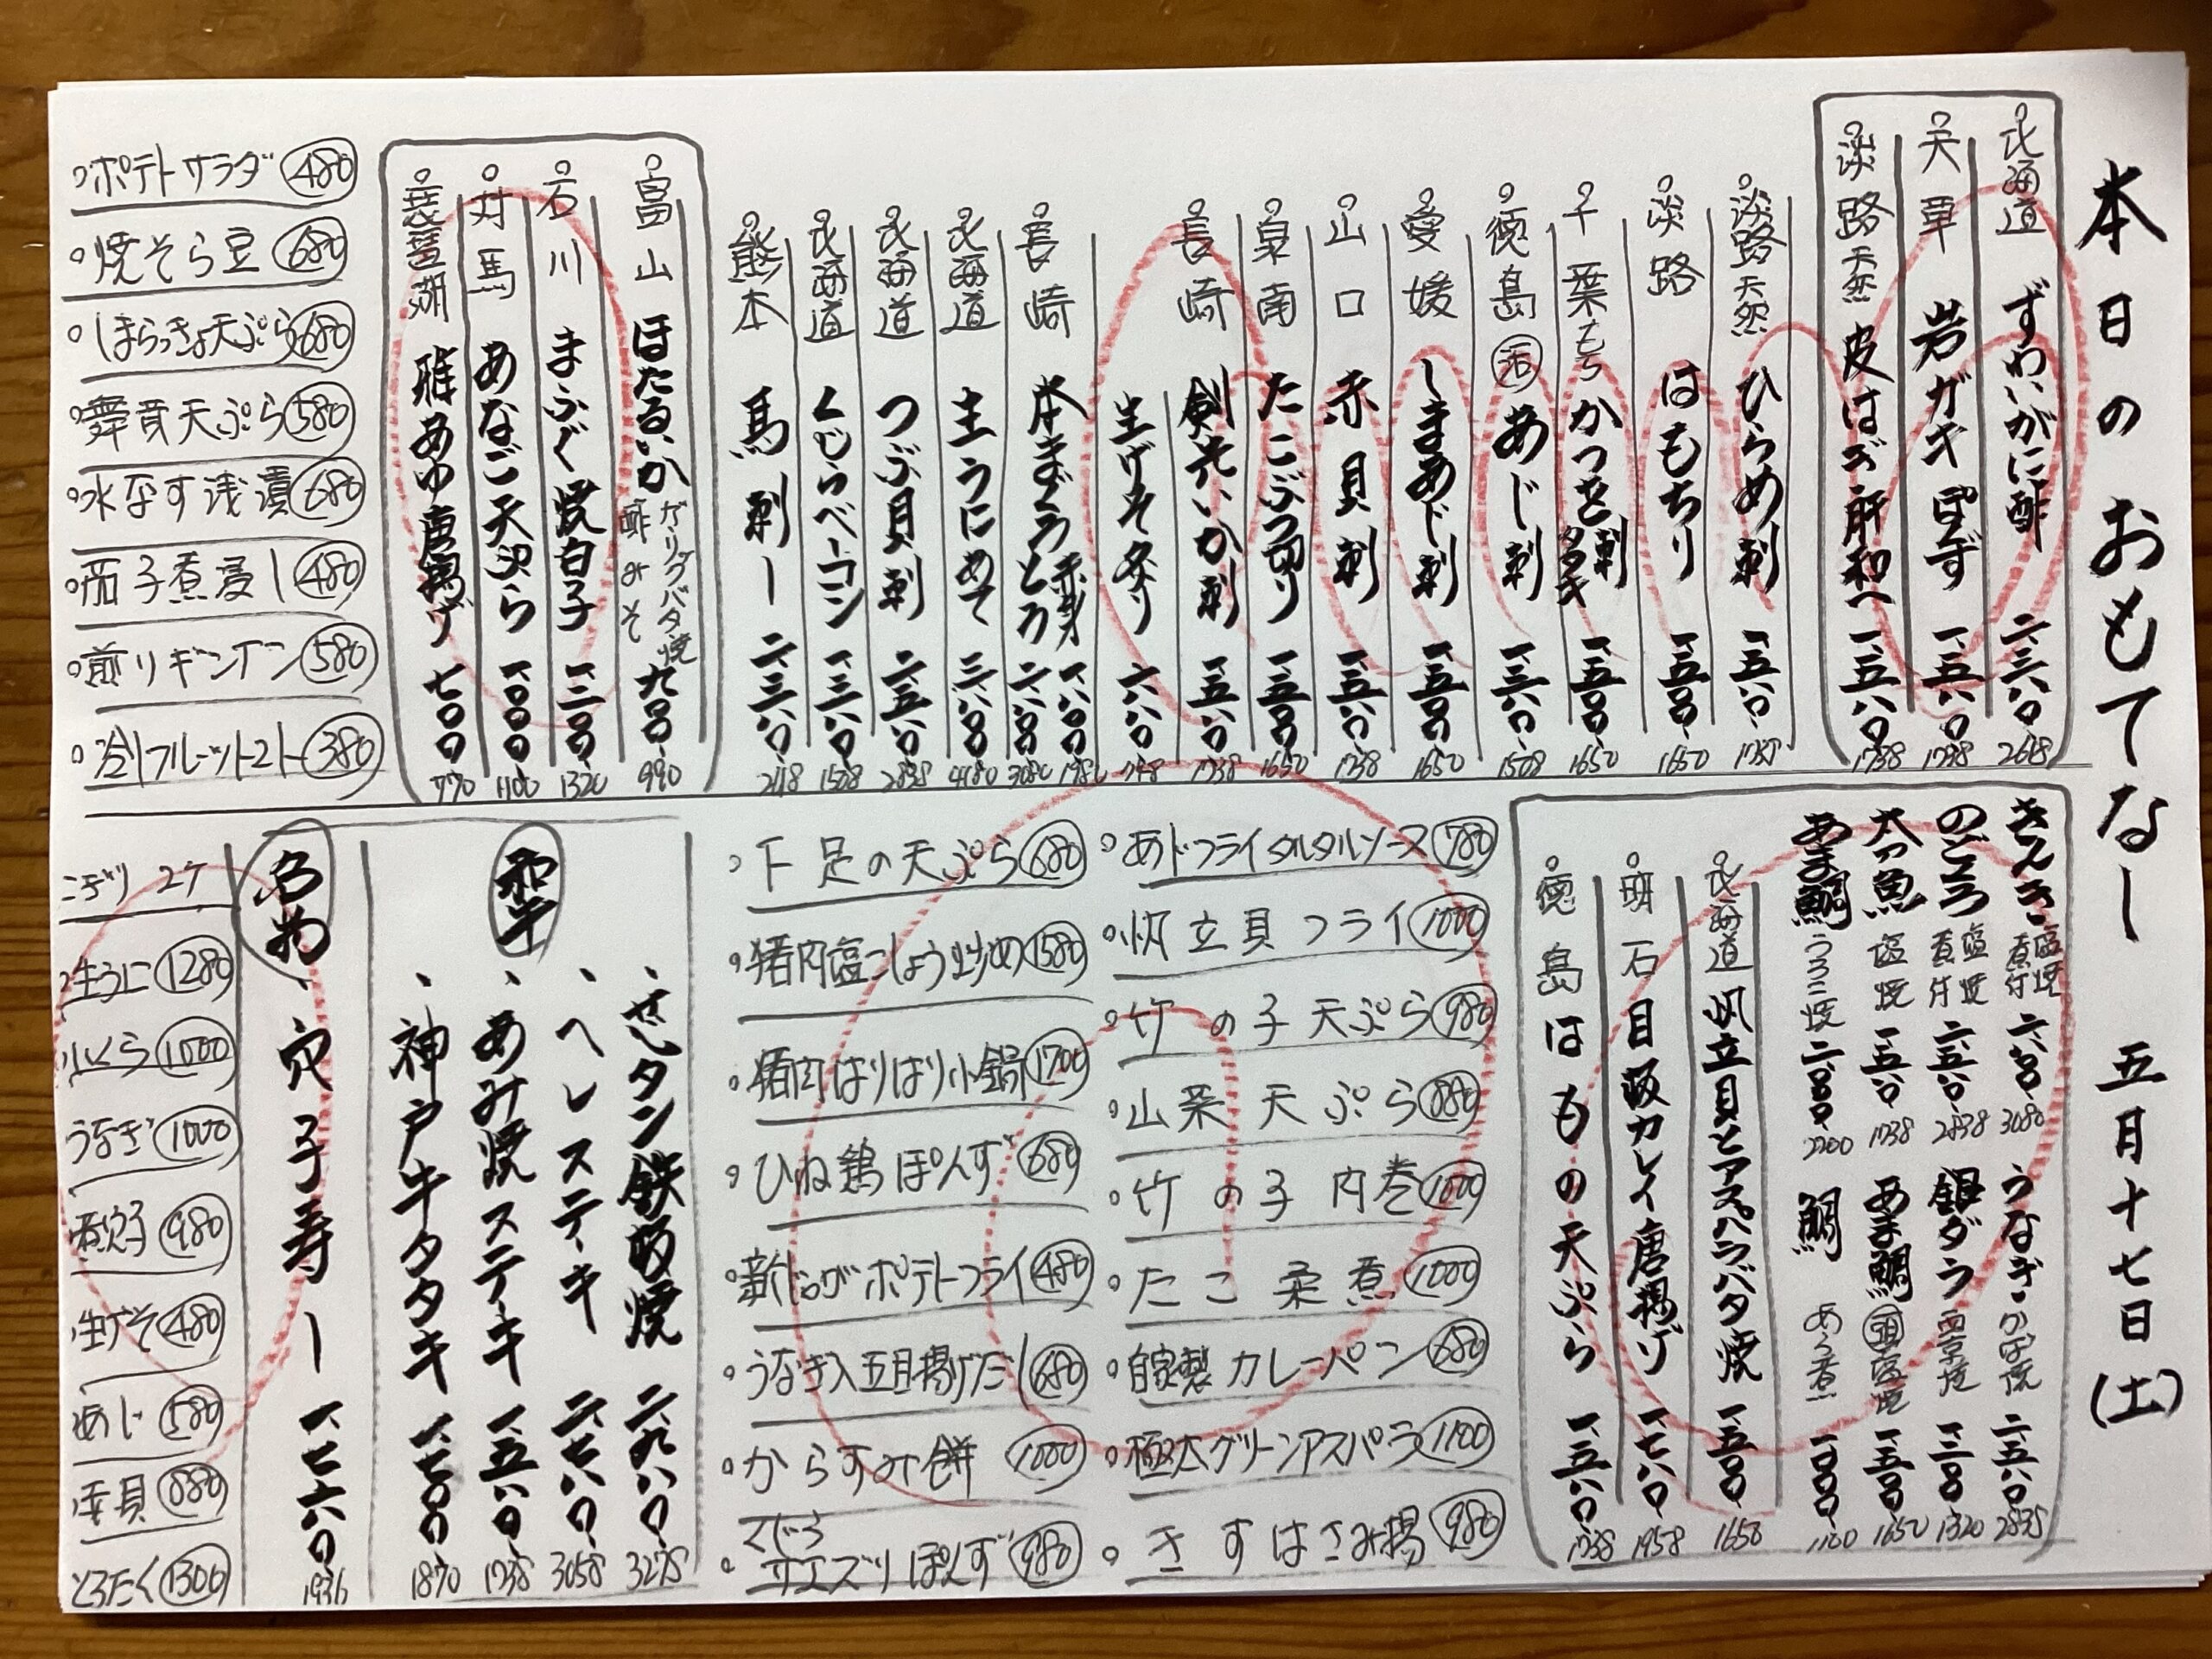 本日のおもてなし 五月十七日(土)
北海道 ずわいがに酢 二、三八〇 2618
天草 岩ガキぽんず 一、五八〇 1738
淡路天然 皮はぎ肝和へ 一、五八〇 1738
淡路天然 ひらめ刺 一、五八〇 1738
淡路 はもちり 一、五〇〇 1650
千葉もち かつを刺 タタキ 一、五〇〇 1650
徳島 活 あじ刺 一、三八〇 1508
愛媛 しまあじ刺 一、五〇〇 1650
山口 赤貝刺 一、五八〇 1738
泉南 たこぶつ切り 一、五〇〇 1650
長崎 剣先いか刺 一、五八〇 1738
生げそ炙り 六八〇 748
長崎 本まぐろ 赤身 一、八〇〇 とろ 二、八〇〇 3080
北海道 生うにめて 三、八〇〇 4180
北海道 つぶ貝刺 二、五八〇 2838
北海道 くじらベーコン 一、三八〇 1508
熊本 馬刺し
富山 ほたるいか ガーリックバタ焼 酢みそ 九〇〇 990
石川 まふぐ焼白子 一、二〇〇 1320
対馬 あなご天ぷら 一、〇〇〇 1100
琵琶湖 稚あゆ唐揚げ 七〇〇 770
ポテトサラダ 480
焼そら豆 680
ほらっきょ天ぷら 680
舞茸天ぷら 580
水なす浅漬 680
茄子煮浸し 480
煎りギンナン 580
冷しフルーツトマト 380
きんき 塩焼 煮付 二、八〇〇 3080 うなぎ かば焼 二、五八〇 2838
のどぐろ 塩焼 煮付 二、五八〇 2838 銀ダラ 西京焼 一、二〇〇 1320
太刀魚 塩焼 一、五八〇 1738 あま鯛 頭 塩焼 一、五〇〇 1650
あま鯛 うろこ焼 二、〇〇〇 2200 鯛 あら煮 一、〇〇〇 1100
北海道 帆立貝とアスパラバタ焼 一、五〇〇 1650
明石 目板カレイ唐揚げ 一、七八〇 1958
徳島 はもの天ぷら 一、五八〇 1738
あじフライタルタルソース 780
帆立貝フライ 1000
竹の子天ぷら 980
山菜天ぷら 880
竹の子肉巻 1000
たこ柔煮 1000
自家製カレーパン 680
極太グリーンアスパラ 1100
きすはさみ揚 980
下足の天ぷら 680
猪肉塩こしょう炒め 1580
猪肉はりはり小鍋 1700
ひね鶏ぽんず 680
新じゃがポテトフライ 480
うなぎ入五目揚げだし 680
からすみ餅 1000
くじらサエズリぽんず 980
雫
せんタン鉄板焼 二、九八〇 3278
ヘレステーキ 二、七八〇 3058
あみ焼ステーキ 一、五八〇 1738
神戸牛タタキ 一、七〇〇 1870
名物
穴子寿し 一、七六〇 1936
こぎり 2ケ
生うに 1280
いくら 1000
うなぎ 1000
煮穴子 980
生げそ 480
あじ 580
赤貝 880
とろたく 1300